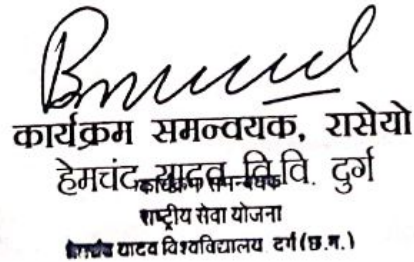 कार्यक्रम समन्वयक, रासेयो
हेमचंद यादव वि.वि. दुर्ग
कार्यक्रम समन्वयक
राष्ट्रीय सेवा योजना
हेमचंद यादव विश्वविद्यालय दुर्ग (छ.ग.)